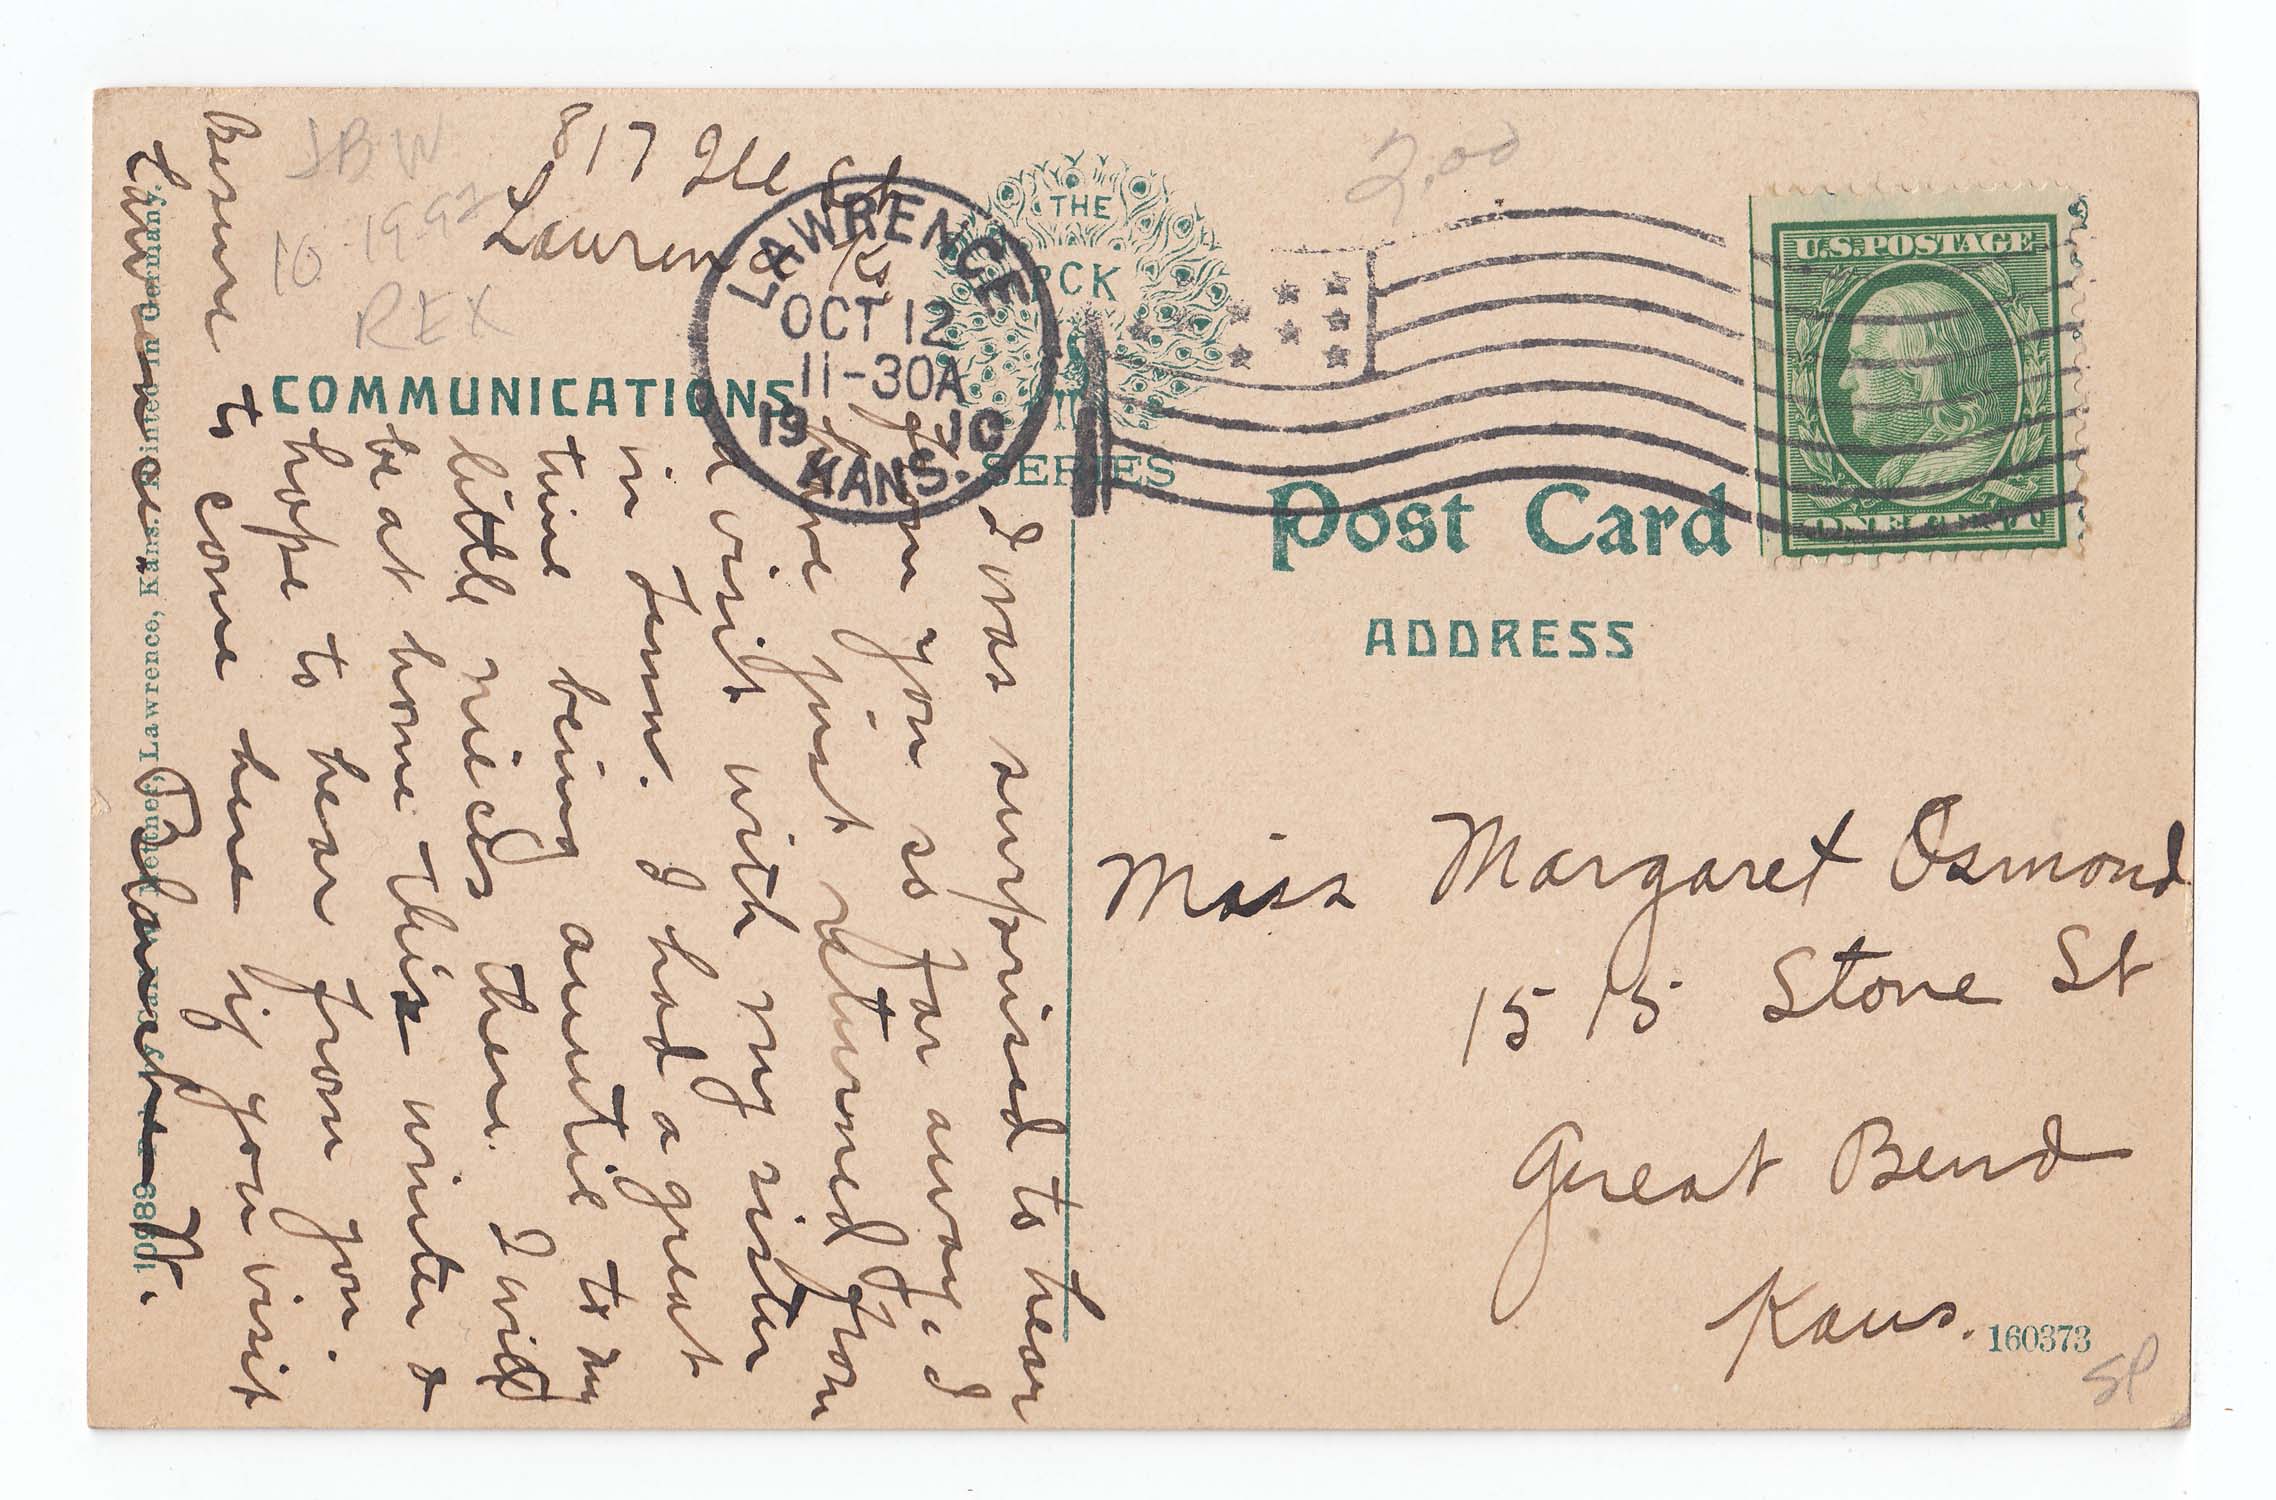 817 Ill St
Lawrence Ks
LAWRENCE
OCT 12
11-30A
1910
KANS.
THE
PCK
SERIES
COMMUNICATIONS
Post Card
ADDRESS
U.S. POSTAGE
ONE CENT
2.00
JBW
10-19-92
REX
I was surprised to hear
from you so far away. I
have just returned from
a visit with my sister
in Tenn. I had a great
time being auntie to my
little nieces there. I will
be at home this winter &
hope to hear from you.
Besure to come here if you visit
Lawrence. Blanche N.
Miss Margaret Osmond
1515 Stone St
Great Bend
Kans.
160373
SP
Lawrence, Kans. Printed in Germany.